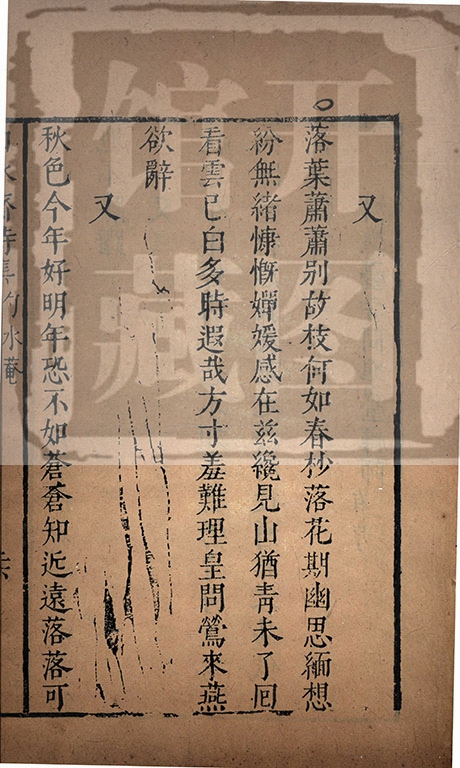 又
落葉蕭蕭別故枝何如春杪落花期幽思緬想
紛無緒慷慨嬋媛感在茲纔見山猶青未了囘
看雲已白多時遐哉方寸羞難理皇問鶯來燕
欲辭
又
秋色今年好明年恐不如蒼蒼知近遠落落可
水菴
开图
馆藏